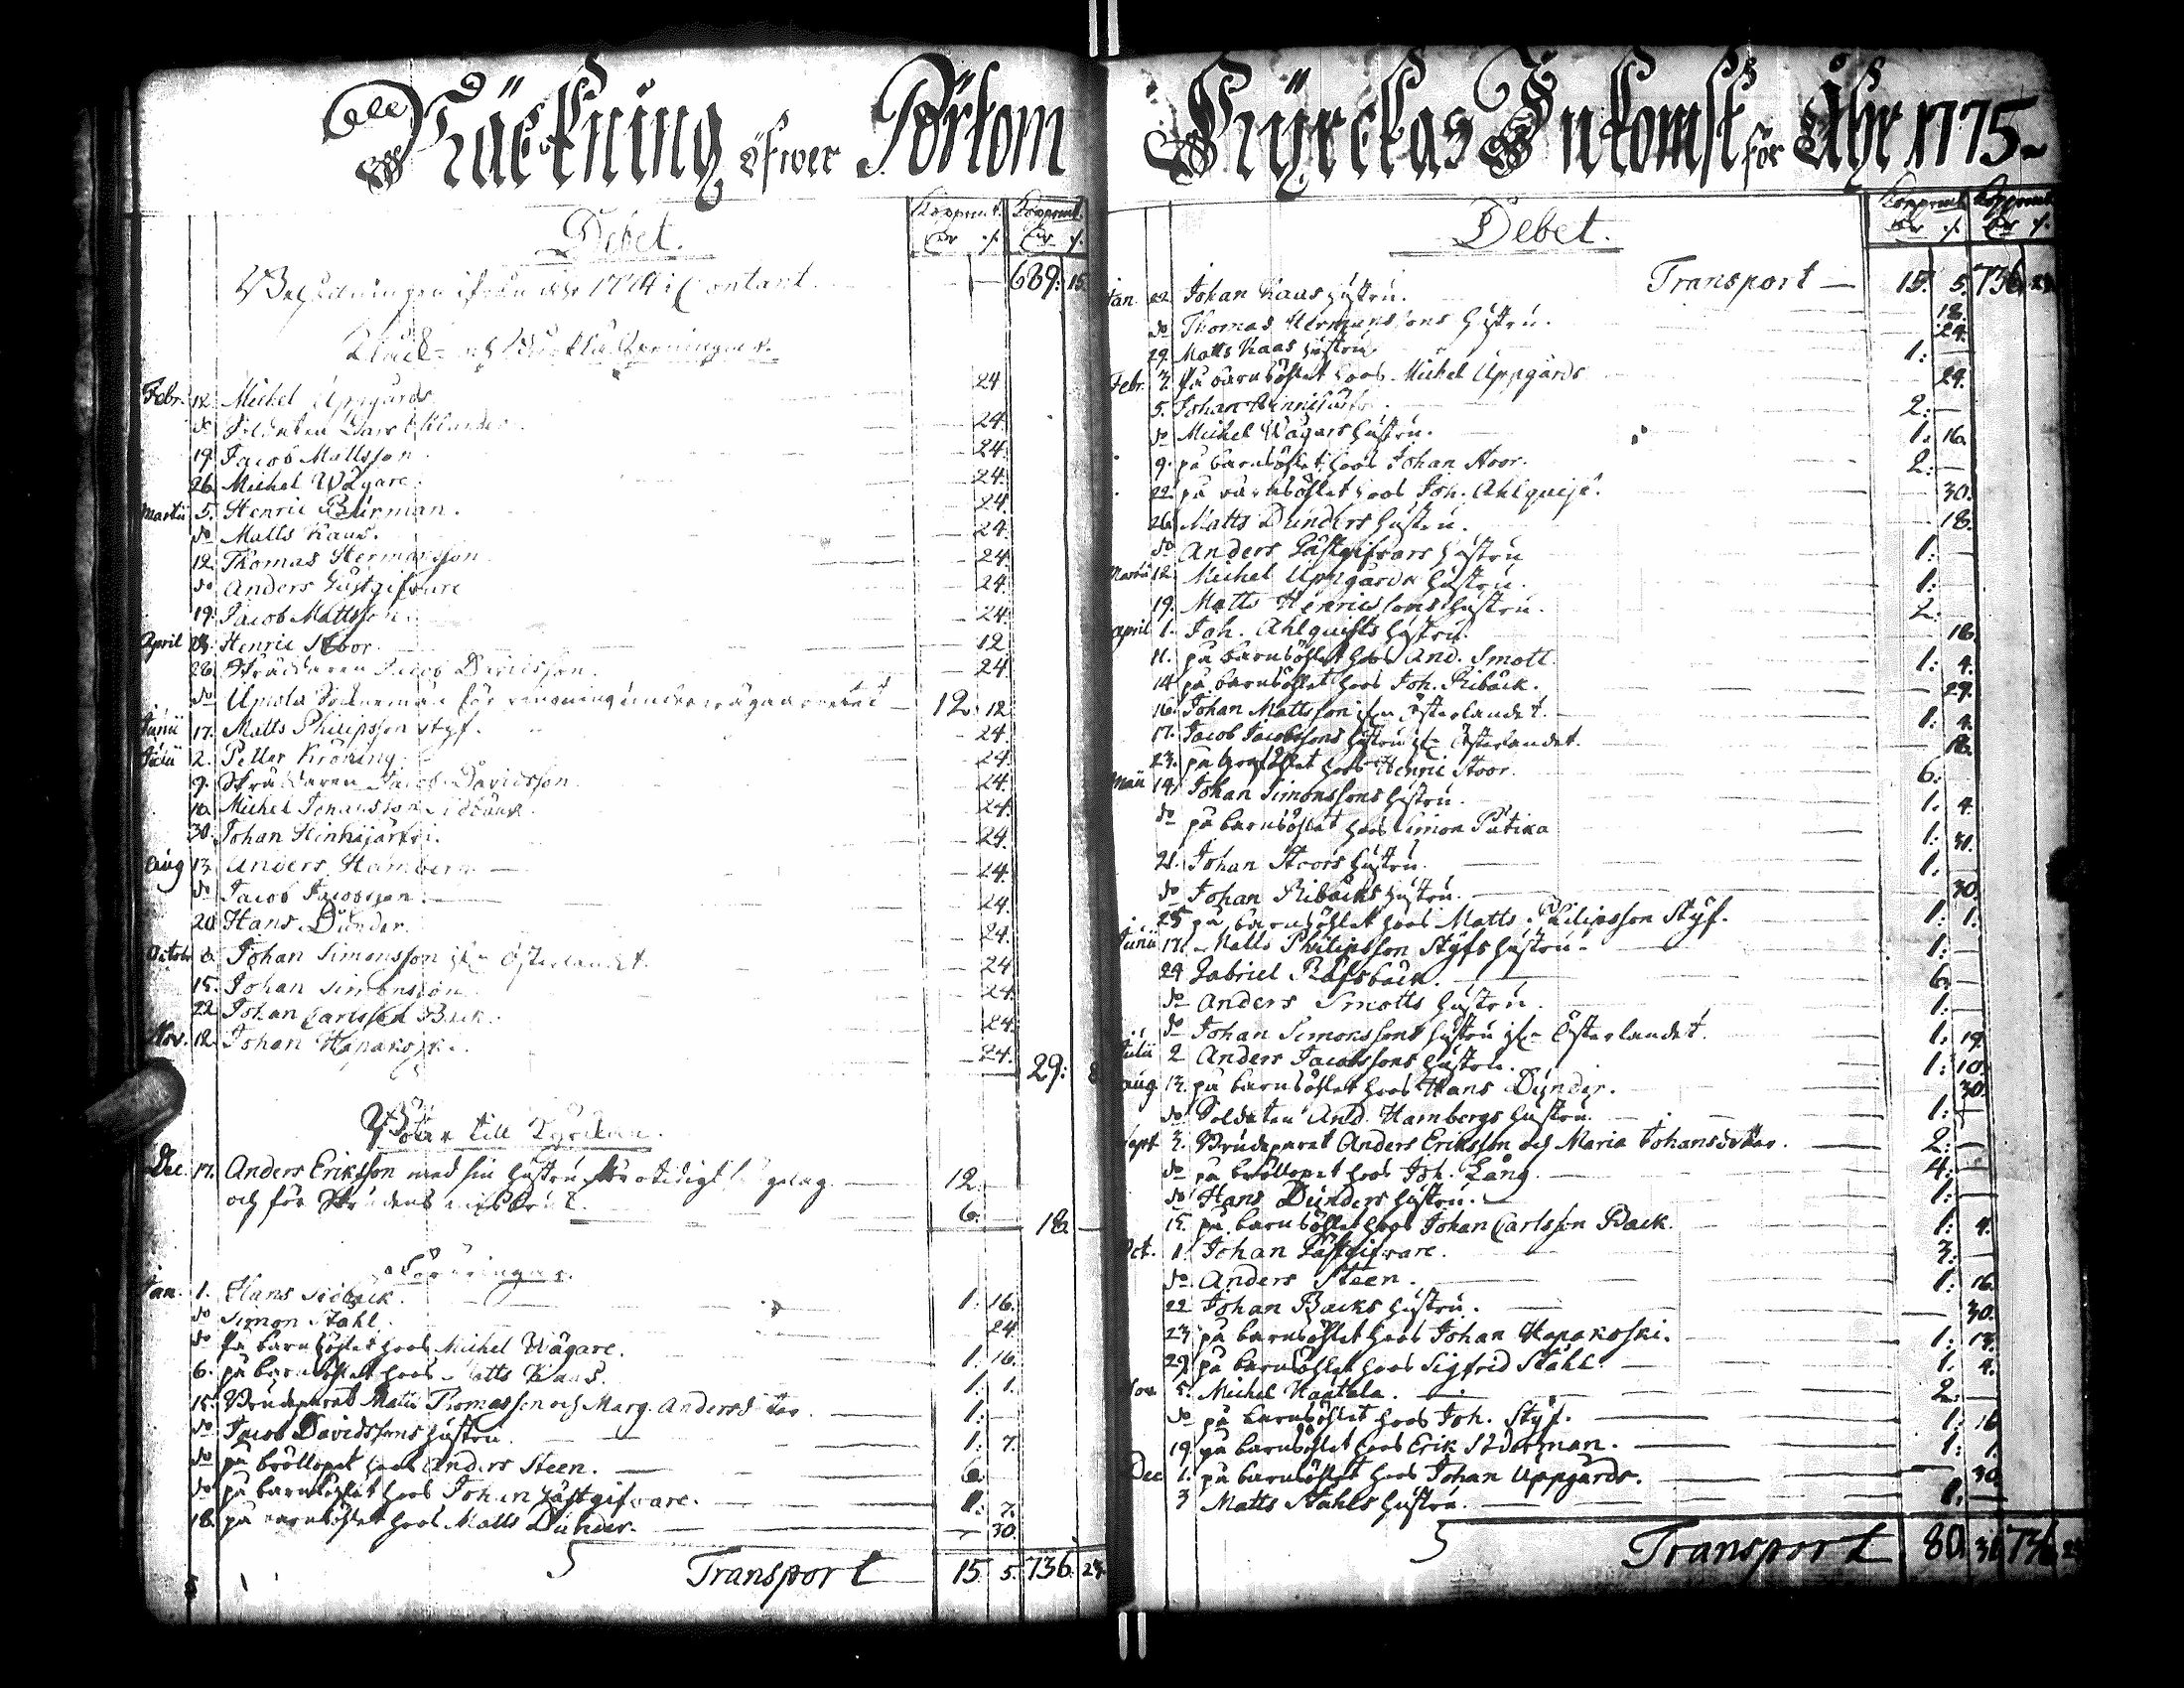 Räckning öfwer Pörtom
Debet.
Kopprmt. Kopprmt.
Dlr /. Dlr /.
Behållningen ifrån åhr 1774 i Contant. — 689: 15.
Klåck- och
Febr. 12. Michel Uppgårds 24
do Soldaten Klander 24.
19. Jacob Mattsson 24.
26. Michel Wägare 24.
Martii 5. Henric Burman. 24.
do Matts Kaas. 24.
12. Thomas Hermansson 24.
do Anders Gästgifware 24.
19. Jacob Mattsson. 24.
April Henric Stoor. 12.
26. Jacob Davidsson. 24.
do för ringning 12: 12
Junii 17. Matts Philipsson Styf. 24.
Julii 2. Petter Kröning. 24.
9. Jacob Davidsson 24.
10. Michel Johansson Sidbäck. 24.
30. Johan 24.
Aug 13. Anders Hamberg — 24.
do Jacob Jacobsson. 24.
20. Hans Dunder. 24.
Octobr 8. Johan Simonsson Österlandet. 24
15. Johan Simonsson 24.
22. Johan Carlsson Back. 24.
Nov. 12. Johan Hapakoski. 24. 29: 8
Böter till Kyrckan.
Dec. 17. Anders Eriksson med sin hustru 12.
och för 6. — 18. —
Jan. 1. Hans Sidbäck. 1: 16.
do Simon Stahl. 24
do På barnsöhlet hoos Michel Wägare. 1: 16.
6. på barnsöhlet hoos Matts Kaas. 1: 1.
15. Brudeparet Matts Thomasson och Marg. Andersd:ter. 1: —
do Jacob Davidssons hustru. 1: 7.
do på bröllopet hoos Anders Steen. — 6
do på barnsöhlet hoos Johan Gästgifware. 1: 7.
18. på barnsöhlet hoos Matts Dunder. — 30.
Transport 15. 5. 736. 23.
Kyrckas Inkomst för Åhr 1775.
Debet.
Kopprmt. Kopprmt.
Dlr /. Dlr /.
Transport — 15. 5. 736. 23.
Jan. 22. Johan Kaas hustru. 18.
do Thomas Hermanssons hustru. 24.
29. Matts Kaas hustru. 1: —
Febr. 3. På barnsöhlet hoos Michel Uppgårds 24.
5. Johan 2: —
do Michel Wägars hustru. 1. 16.
9. på barnsöhlet hoos Johan Stoor. 2: —
22. på barnsöhlet hoos Joh. Ahlquist. 30.
26. Matts Dunders hustru. 18.
do Anders Gästgifvars hustru 1: —
Martii 12. Michel Uppgårds hustru. 1: —
19. Matts Henricssons hustru. 2.
April 1. Joh. Ahlquists hustru. 16.
11. på barnsöhlet hoos And. Smott. 1: 4.
14 på barnsöhlet hoos Joh. Ribäck. 29.
16. Johan Mattsson Österlandet. 1: 4.
17. Jacob Jacobssons hustru Österlandet. 18.
23. på hoos Henric Stoor. 6: —
Maii 14. Johan Simonssons hustru. 1: 4.
do på barnsöhlet hoos Simon Putika 1: 31.
21. Johan Stoors hustru. — 1: —
do Johan Ribäcks hustru. — 30.
25 på barnsöhlet hoos Matts Philipsson Styf. 1: 1.
Junii 17. Matts Philipsson Styfs hustru. 1: —
24 Gabriel Räfsbäck. — 6. —
do Anders Smotts hustru. 1: —
do Johan Simonssons hustru Österlandet. 1: 19.
Julii 2 Anders Jacobssons hustru. 1: 10.
Aug 13. på barnsöhlet hoos Hans Dunder. 30.
do Soldaten And. Hambergs hustru. — 1: —
Sept 3. Brudeparet Anders Eriksson och Maria Johansdotter. 2: —
do på bröllopet hoos Joh. Lång. 4. —
do Hans Dunders hustru. 1: —
15. på barnsöhlet hoos Johan Carlsson Back. 1: 4.
Oct. 1. Johan Gästgifvare. 3: —
do Anders Steen. 1: 16.
22 Johan Backs hustru. — 30.
23 på barnsöhlet hoos Johan Hapakoski. — 1: 13.
29. på barnsöhlet hoos Sigfrid Stahl — 1. 4.
Nov. 5. Michel Hantala. — 2. —
do på barnsöhlet hoos Joh. Styf. — 1: 16
19 på barnsöhlet hoos Erik Söderman. — 1: 1.
Dec 1. på barnsöhlet hoos Johan Uppgårds. — 30
3 Matts Stahls hustru. — 1. —
Transport 80. 31. 736. 23.